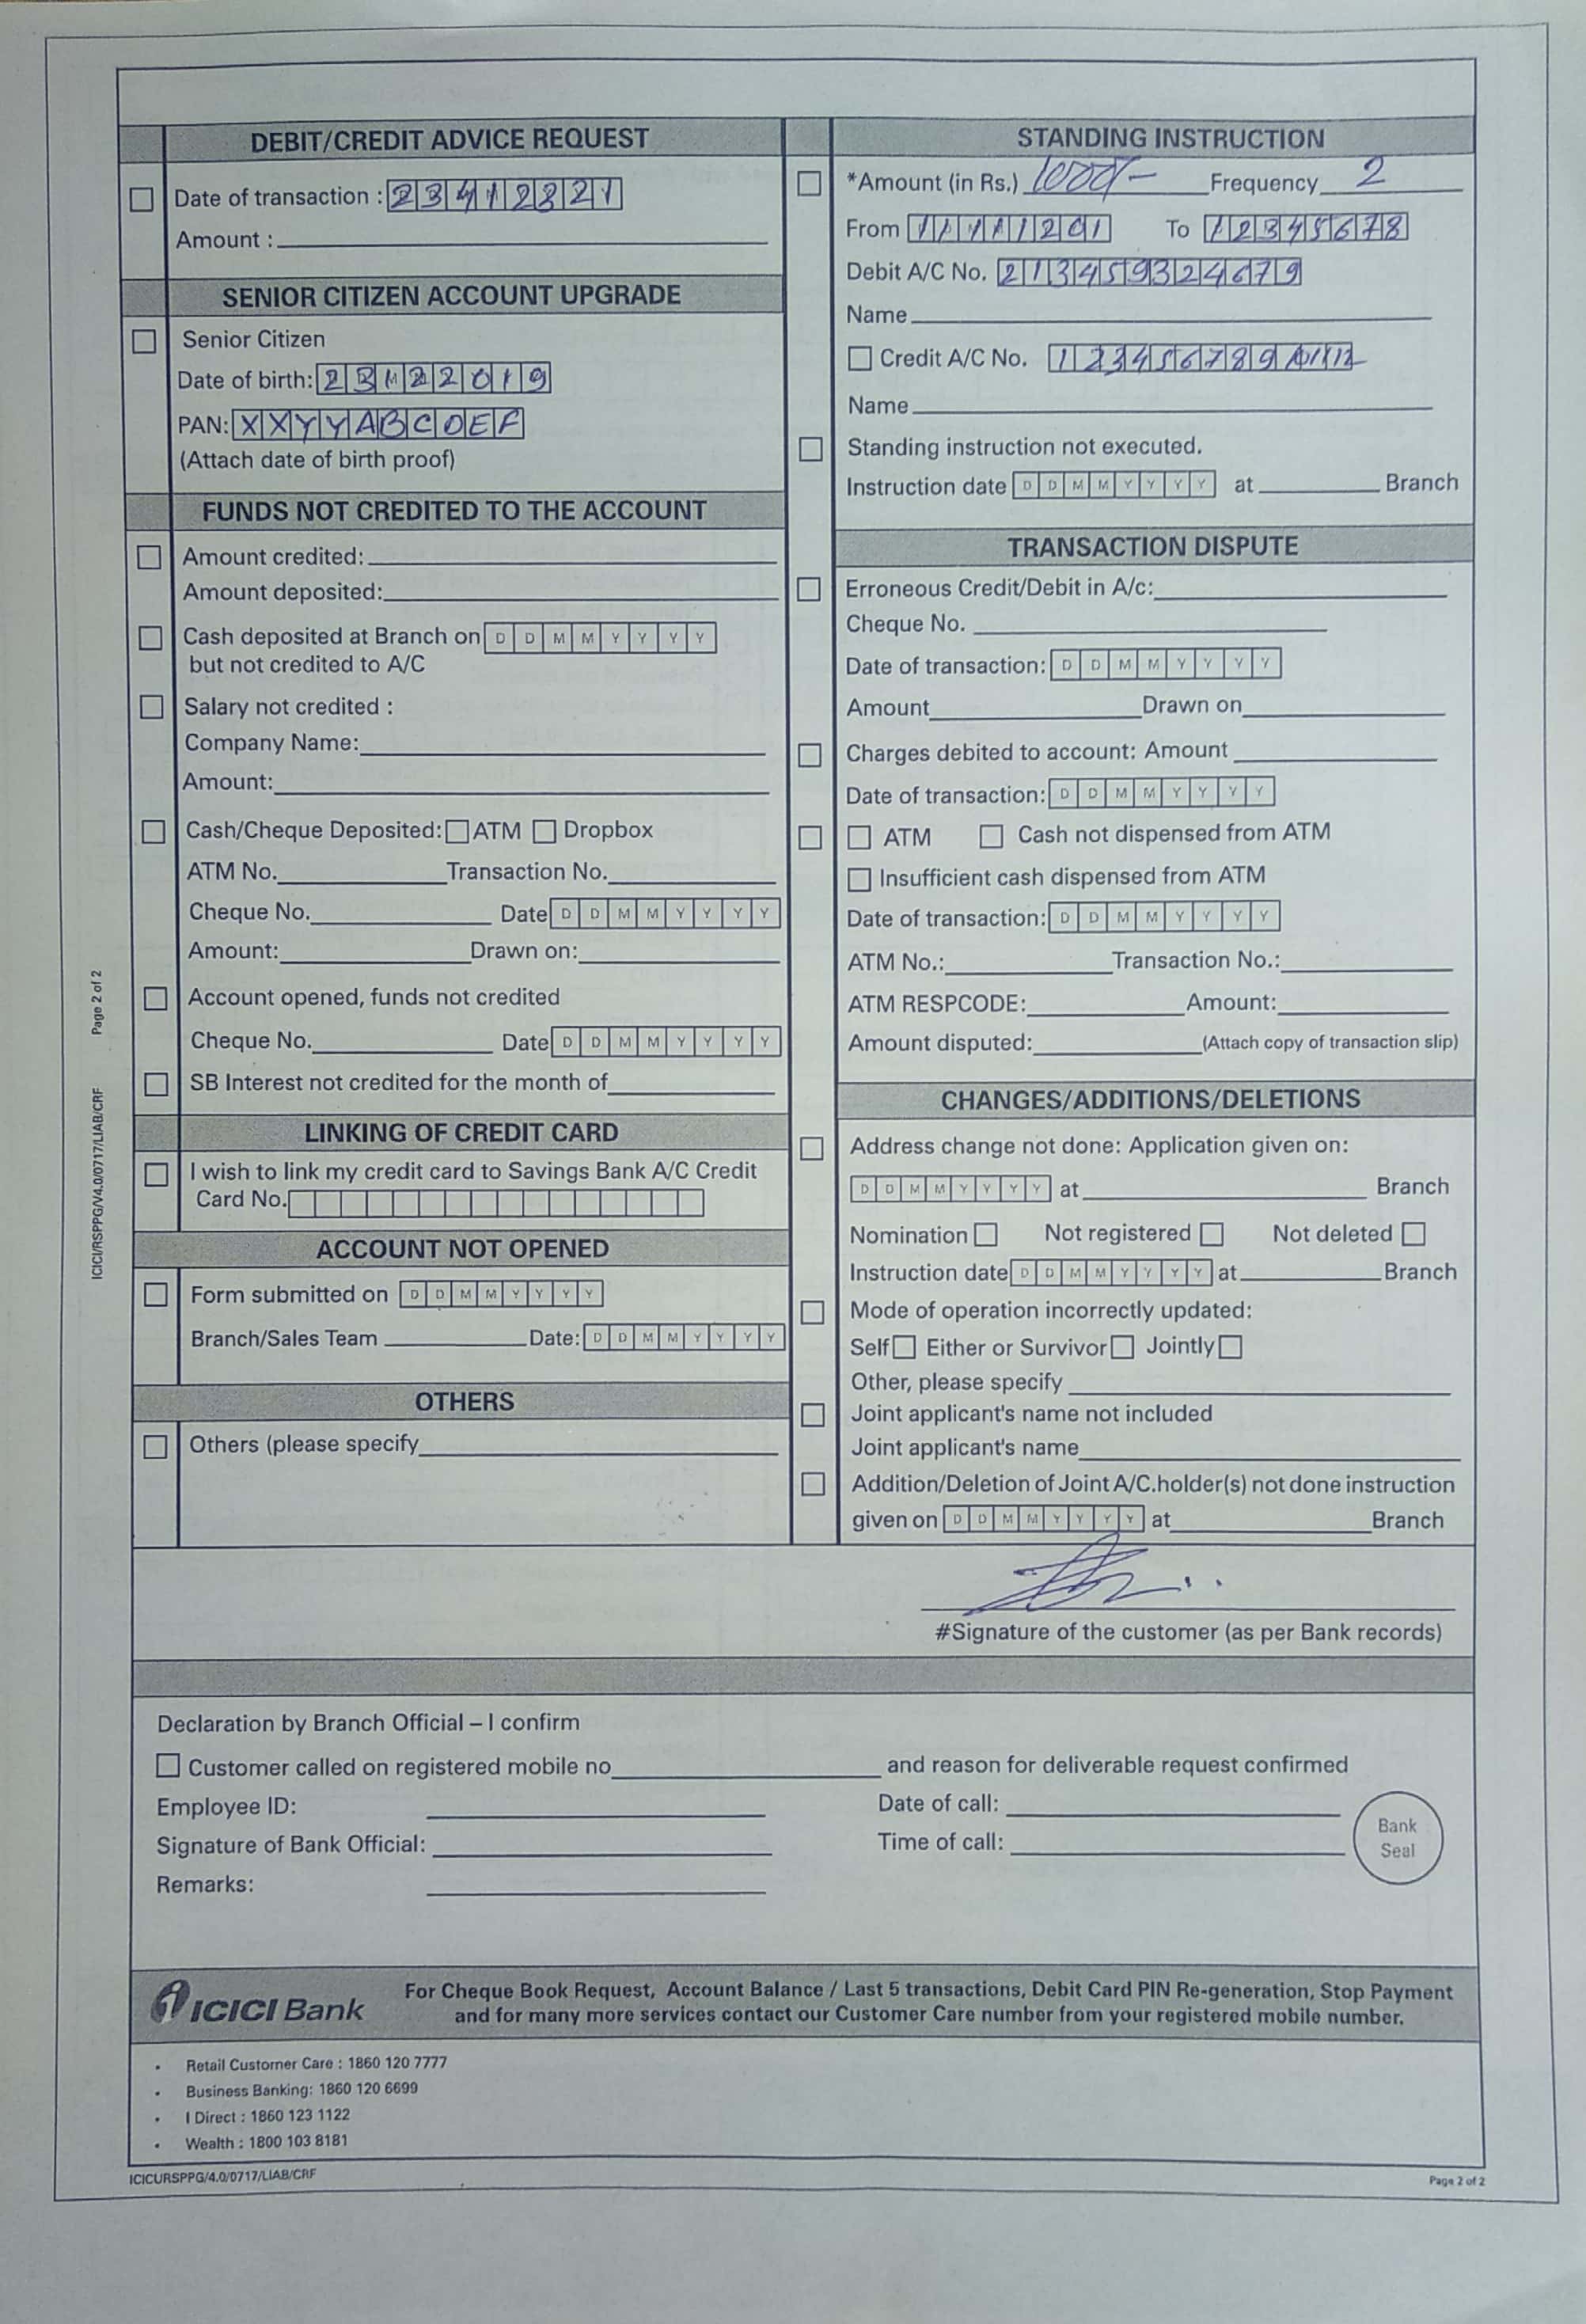 DEBIT/CREDIT ADVICE REQUEST
Date of transaction : 23412821
Amount :
SENIOR CITIZEN ACCOUNT UPGRADE
Senior Citizen
Date of birth:
PAN: XXYYABCDEF
(Attach date of birth proof)
FUNDS NOT CREDITED TO THE ACCOUNT
Amount credited:
Amount deposited:
Cash deposited at Branch on D D M M Y Y Y Y
but not credited to A/C
Salary not credited :
Company Name:
Amount:
Cash/Cheque Deposited: ATM Dropbox
ATM No. Transaction No.
Cheque No. Date D D M M Y Y Y Y
Amount: Drawn on:
Account opened, funds not credited
Cheque No. Date D D M M Y Y Y Y
SB Interest not credited for the month of
LINKING OF CREDIT CARD
I wish to link my credit card to Savings Bank A/C Credit
Card No.
ACCOUNT NOT OPENED
Form submitted on D D M M Y Y Y Y
Branch/Sales Team Date: D D M M Y Y Y Y
OTHERS
Others (please specify
STANDING INSTRUCTION
*Amount (in Rs.) 1000/- Frequency 2
From 11111201 To 12345678
Debit A/C No. 213459324679
Name
Credit A/C No.
Name
Standing instruction not executed.
Instruction date D D M M Y Y Y Y at Branch
TRANSACTION DISPUTE
Erroneous Credit/Debit in A/c:
Cheque No.
Date of transaction: D D M M Y Y Y Y
Amount Drawn on
Charges debited to account: Amount
Date of transaction: D D M M Y Y Y Y
ATM Cash not dispensed from ATM
Insufficient cash dispensed from ATM
Date of transaction: D D M M Y Y Y Y
ATM No.: Transaction No.:
ATM RESPCODE: Amount:
Amount disputed: (Attach copy of transaction slip)
CHANGES/ADDITIONS/DELETIONS
Address change not done: Application given on:
D D M M Y Y Y Y at Branch
Nomination Not registered Not deleted
Instruction date D D M M Y Y Y Y at Branch
Mode of operation incorrectly updated:
Self Either or Survivor Jointly
Other, please specify
Joint applicant's name not included
Joint applicant's name
Addition/Deletion of Joint A/C.holder(s) not done instruction
given on D D M M Y Y Y Y at Branch
#Signature of the customer (as per Bank records)
Declaration by Branch Official – I confirm
Customer called on registered mobile no and reason for deliverable request confirmed
Employee ID: Date of call:
Signature of Bank Official: Time of call:
Remarks:
Bank
Seal
ICICI Bank
For Cheque Book Request, Account Balance / Last 5 transactions, Debit Card PIN Re-generation, Stop Payment
and for many more services contact our Customer Care number from your registered mobile number.
• Retail Customer Care : 1860 120 7777
• Business Banking: 1860 120 6699
• I Direct : 1860 123 1122
• Wealth : 1800 103 8181
ICICURSPPG/4.0/0717/LIAB/CRF
Page 2 of 2
ICICI/RSPPG/V4.0/0717/LIAB/CRF Page 2 of 2